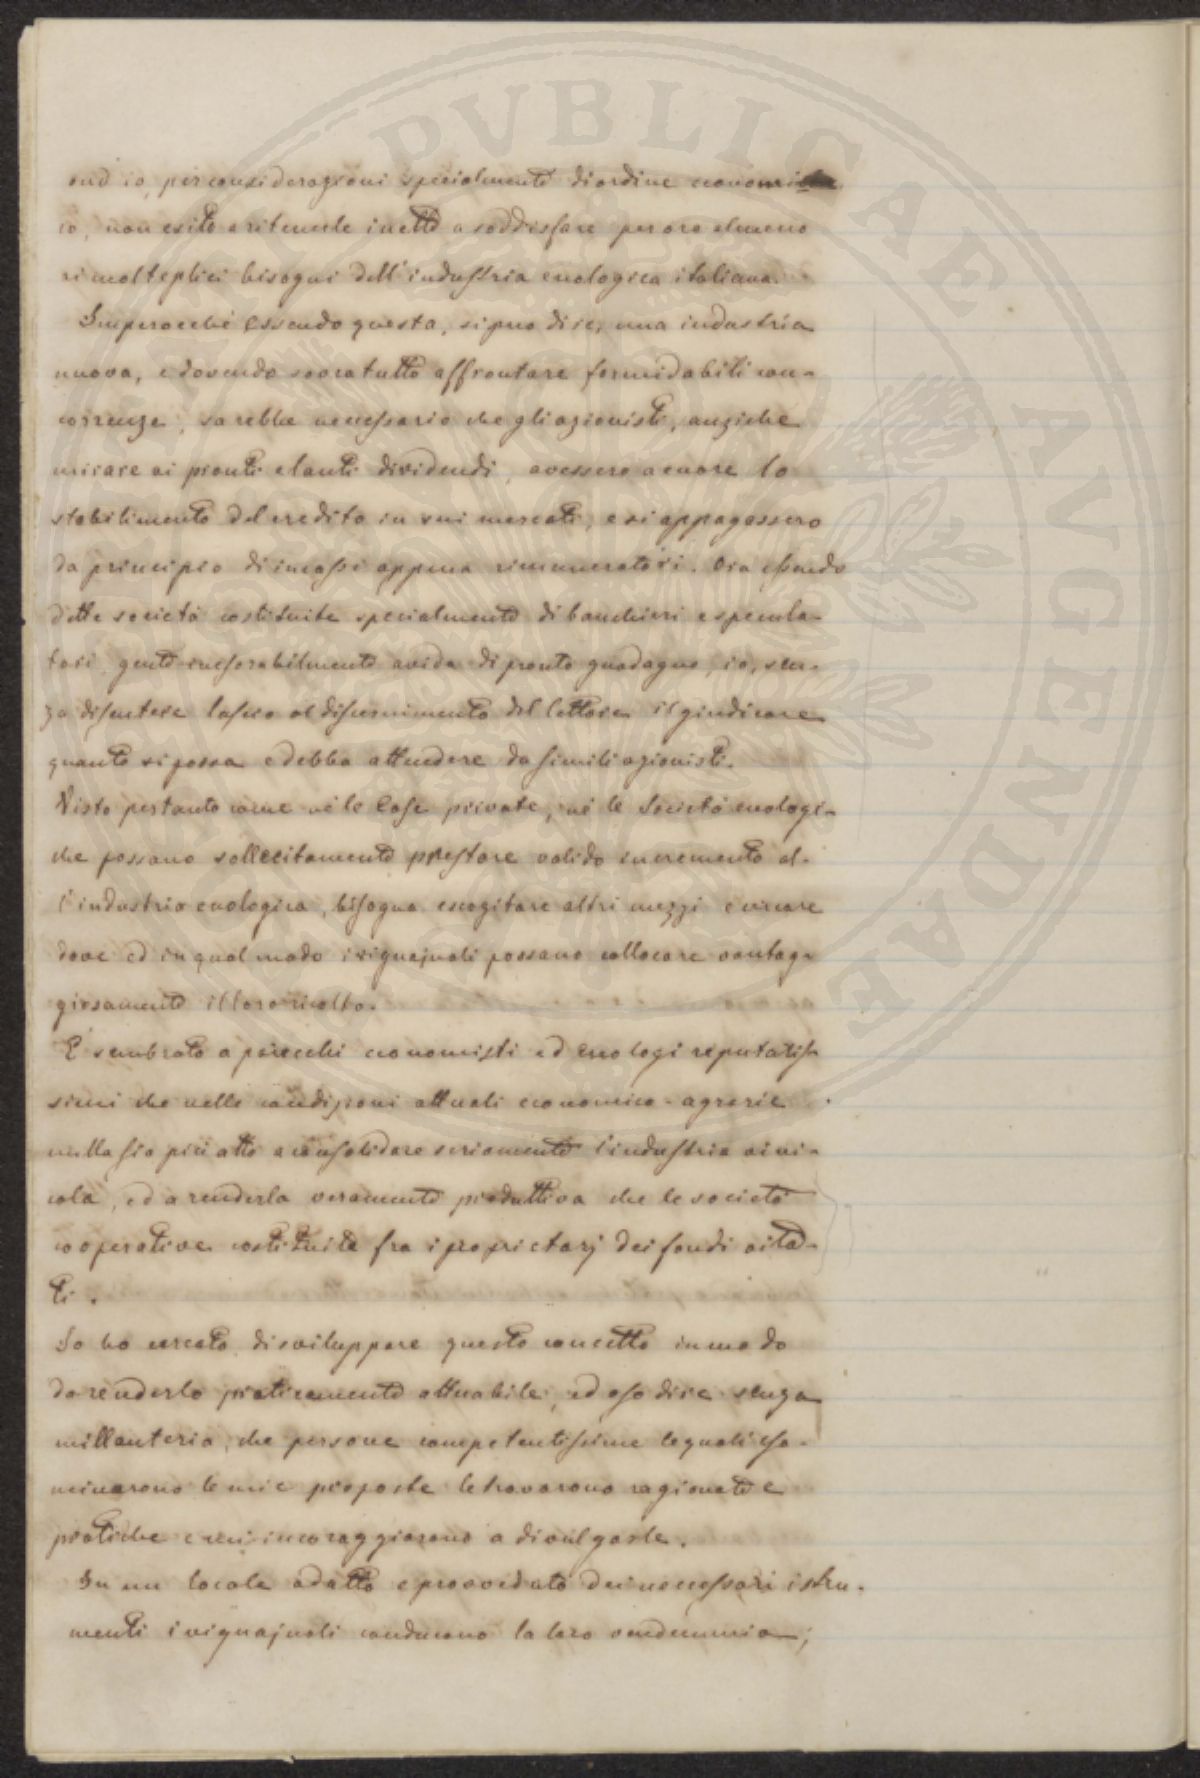 ond'io, per considerazioni specialmente di ordine economi
co, non esito a ritenerle inette a soddisfare per ora almeno
ai molteplici bisogni dell'industria enologica italiana.
Imperocchè essendo questa, si può dire, una industria
nuova, e dovendo sopratutto affrontare formidabili con-
correnze, sarebbe necessario che gli azionisti, anziche
mirare ai pronti e lauti dividendi, avessero a cuore lo
stabilimento del credito in vini mercati, e si appagassero
da principio di incassi appena rimuneratori. Ora essendo
dette società costituite specialmente di banchieri e specula-
tori, gente inesorabilmente avida di pronto guadagno, io, sen-
za discutere lascio al discernimento del lettore il giudicare
quanto si possa e debba attendere da simili azionisti.
Visto pertanto come nè le Case private, nè le Società enologi-
che possano sollecitamente prestare valido incremento al-
l'industria enologica, bisogna escogitare altri mezzi e cercare
dove ed in qual modo i vignajuoli possano collocare vantag-
giosamente il loro ricolto.
È sembrato a parecchi economisti ed enologi reputatis-
simi che nelle condizioni attuali economico-agrarie
nulla sia più atto a consolidare seriamente l'industria vini-
cola, ed a renderla veramente produttiva che le società
cooperative costituite fra i proprietarj dei fondi vita-
ti.
Io ho cercato di sviluppare questo concetto in modo
da renderlo praticamente attuabile, ed oso dire senza
millanteria, che persone competentissime le quali esa-
minarono le mie proposte le trovarono ragionate e
pratiche e mi incoraggiarono a divulgarle.
In un locale adatto e provveduto dei necessari istru-
menti i vignajuoli conducono la loro vendemmia;
PVBLICAE AVGENDAE